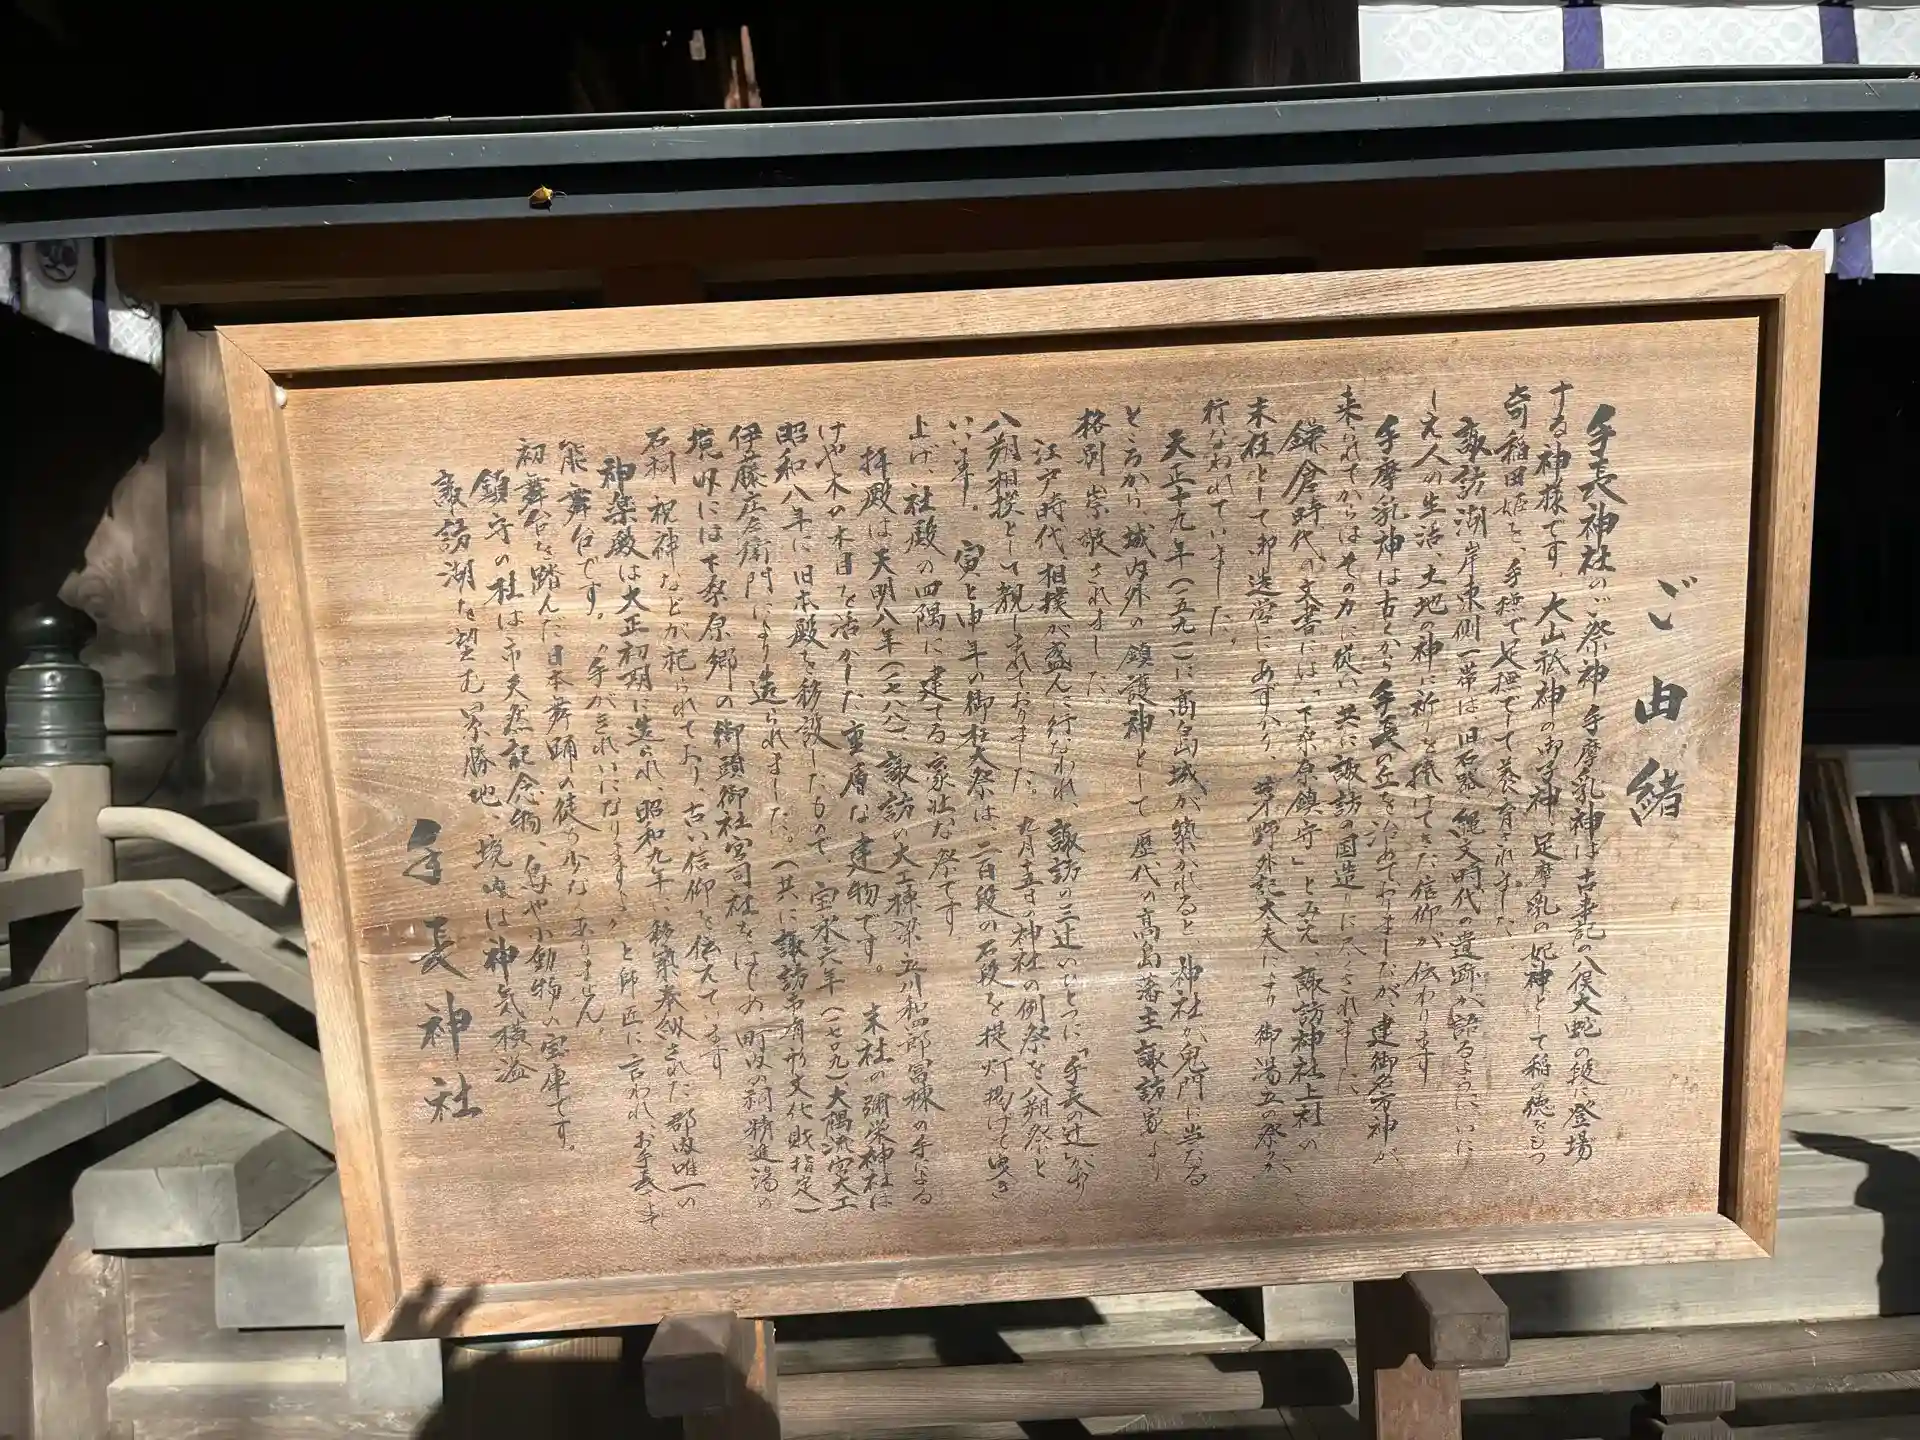 ご由緒
手長神社のご祭神 手摩乳神は古事記の八俣大蛇の段に登場
する神様です。大山祇神の御子神 足摩乳の妃神として稲の徳をもつ
奇稲田姫を、手摩で足撫でして養育されました。
諏訪湖岸東側一帯は旧石器、縄文時代の遺跡が語るようにいにし
しえ人の生活、土地の神に祈りを捧げてきた信仰が伝わります
手摩乳神は古くから手長の丘を治めておりましたが、建御名方神が
来られてからはその力に従い共に諏訪の国造りに尽くされました。
鎌倉時代の文書には「下桑原鎮守」とみえ、諏訪神社上社の
末社として御造営にあずかり、茅野外記大夫により御湯立の祭りが
行なわれていました。
天正十九年(一五九一)に高島城が築かれると、神社が鬼門に当たる
ところから、城内外の鎮護神として歴代の高島藩主諏訪家より
格別崇敬されました。
江戸時代、相撲が盛んに行なわれ、諏訪の三辻のひとつに「手長の辻」があり
八朔相撲として親しまれておりました。九月十五日の神社の例祭を八朔祭と
いいます。寅と申年の御柱大祭は、二百段の石段を提灯掲げて曳き
上げ、社殿の四隅に建てる豪壮な祭です
拝殿は天明八年(一七八八)諏訪の大工棟梁立川和四郎冨棟の手による
けや木の木目を活かした重厚な建物です。末社の彌栄神社は
昭和八年に旧本殿を移設したもので、宝永六年(一七〇九)、大隅流宮大工
伊藤庄左衛門により造られました。(共に諏訪市有形文化財指定)
境内には下桑原郷の御頭御社宮司社をはじめ、町内の祠、精進湯の
石祠、祝神などが祀られており、古い信仰を伝えています
神楽殿は大正初期に造られ、昭和九年に移築奉納された郡内唯一の
能舞台です。"手がきれいになりますように"と師匠に言われ、お手長さまで
初舞台を踏んだ日本舞踊の徒も少なくありません。
鎮守の杜は市天然記念物、鳥や小動物の宝庫です。
諏訪湖を望む景勝地、境内は神気横溢
手長神社